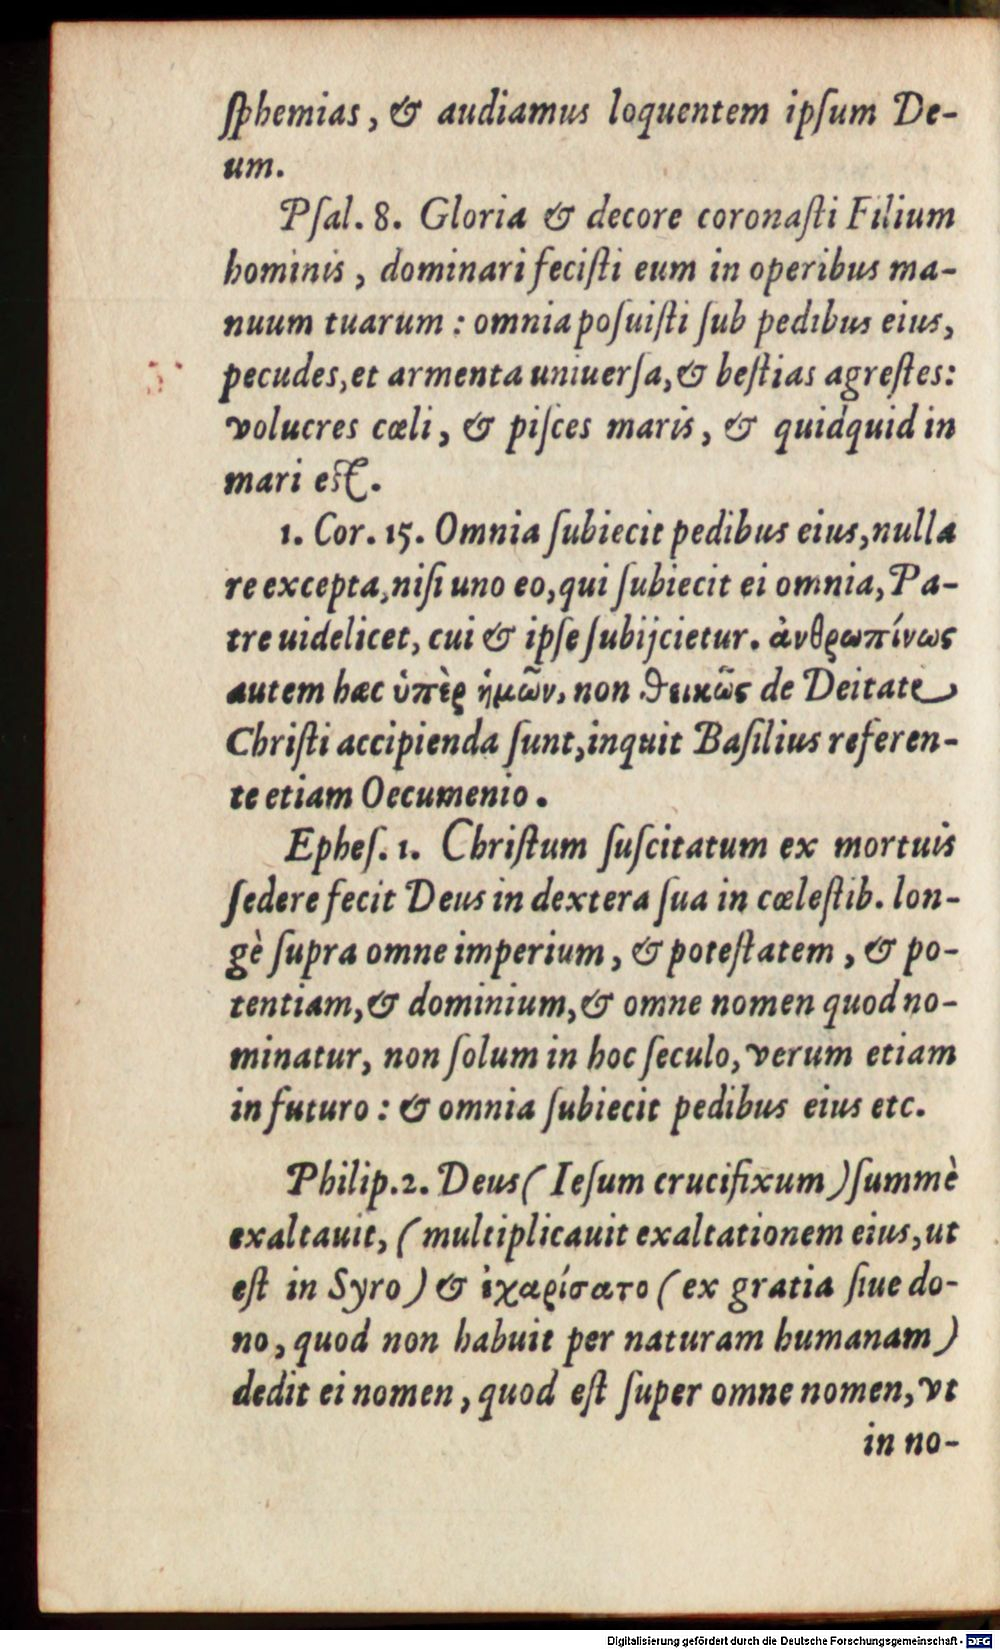 ſphemias, & audiamus loquentem ipſum De-
um.
Pſal. 8. Gloria & decore coronaſti Filium
hominis, dominari feciſti eum in operibus ma-
nuum tuarum: omnia poſuiſti ſub pedibus eius,
pecudes, et armenta uniuerſa, & beſtias agreſtes:
volucres cœli, & piſces maris, & quidquid in
mari eſt.
1. Cor. 15. Omnia ſubiecit pedibus eius, nulla
re excepta, niſi uno eo, qui ſubiecit ei omnia, Pa-
tre uidelicet, cui & ipſe ſubijcietur. ἀνθρωπίνως
autem hæc ὑπὲρ ἡμῶν, non θεικῶς de Deitate
Chriſti accipienda ſunt, inquit Baſilius referen-
te etiam Oecumenio.
Epheſ. 1. Chriſtum ſuſcitatum ex mortuis
ſedere fecit Deus in dextera ſua in cœleſtib. lon-
gè ſupra omne imperium, & poteſtatem, & po-
tentiam, & dominium, & omne nomen quod no-
minatur, non ſolum in hoc ſeculo, verum etiam
in futuro: & omnia ſubiecit pedibus eius etc.
Philip. 2. Deus (Ieſum crucifixum) ſummè
exaltauit, (multiplicauit exaltationem eius, ut
eſt in Syro) & ἐχαρίσατο (ex gratia ſiue do-
no, quod non habuit per naturam humanam)
dedit ei nomen, quod eſt ſuper omne nomen, vt
in no-
Digitalisierung gefördert durch die Deutsche Forschungsgemeinschaft - DFG